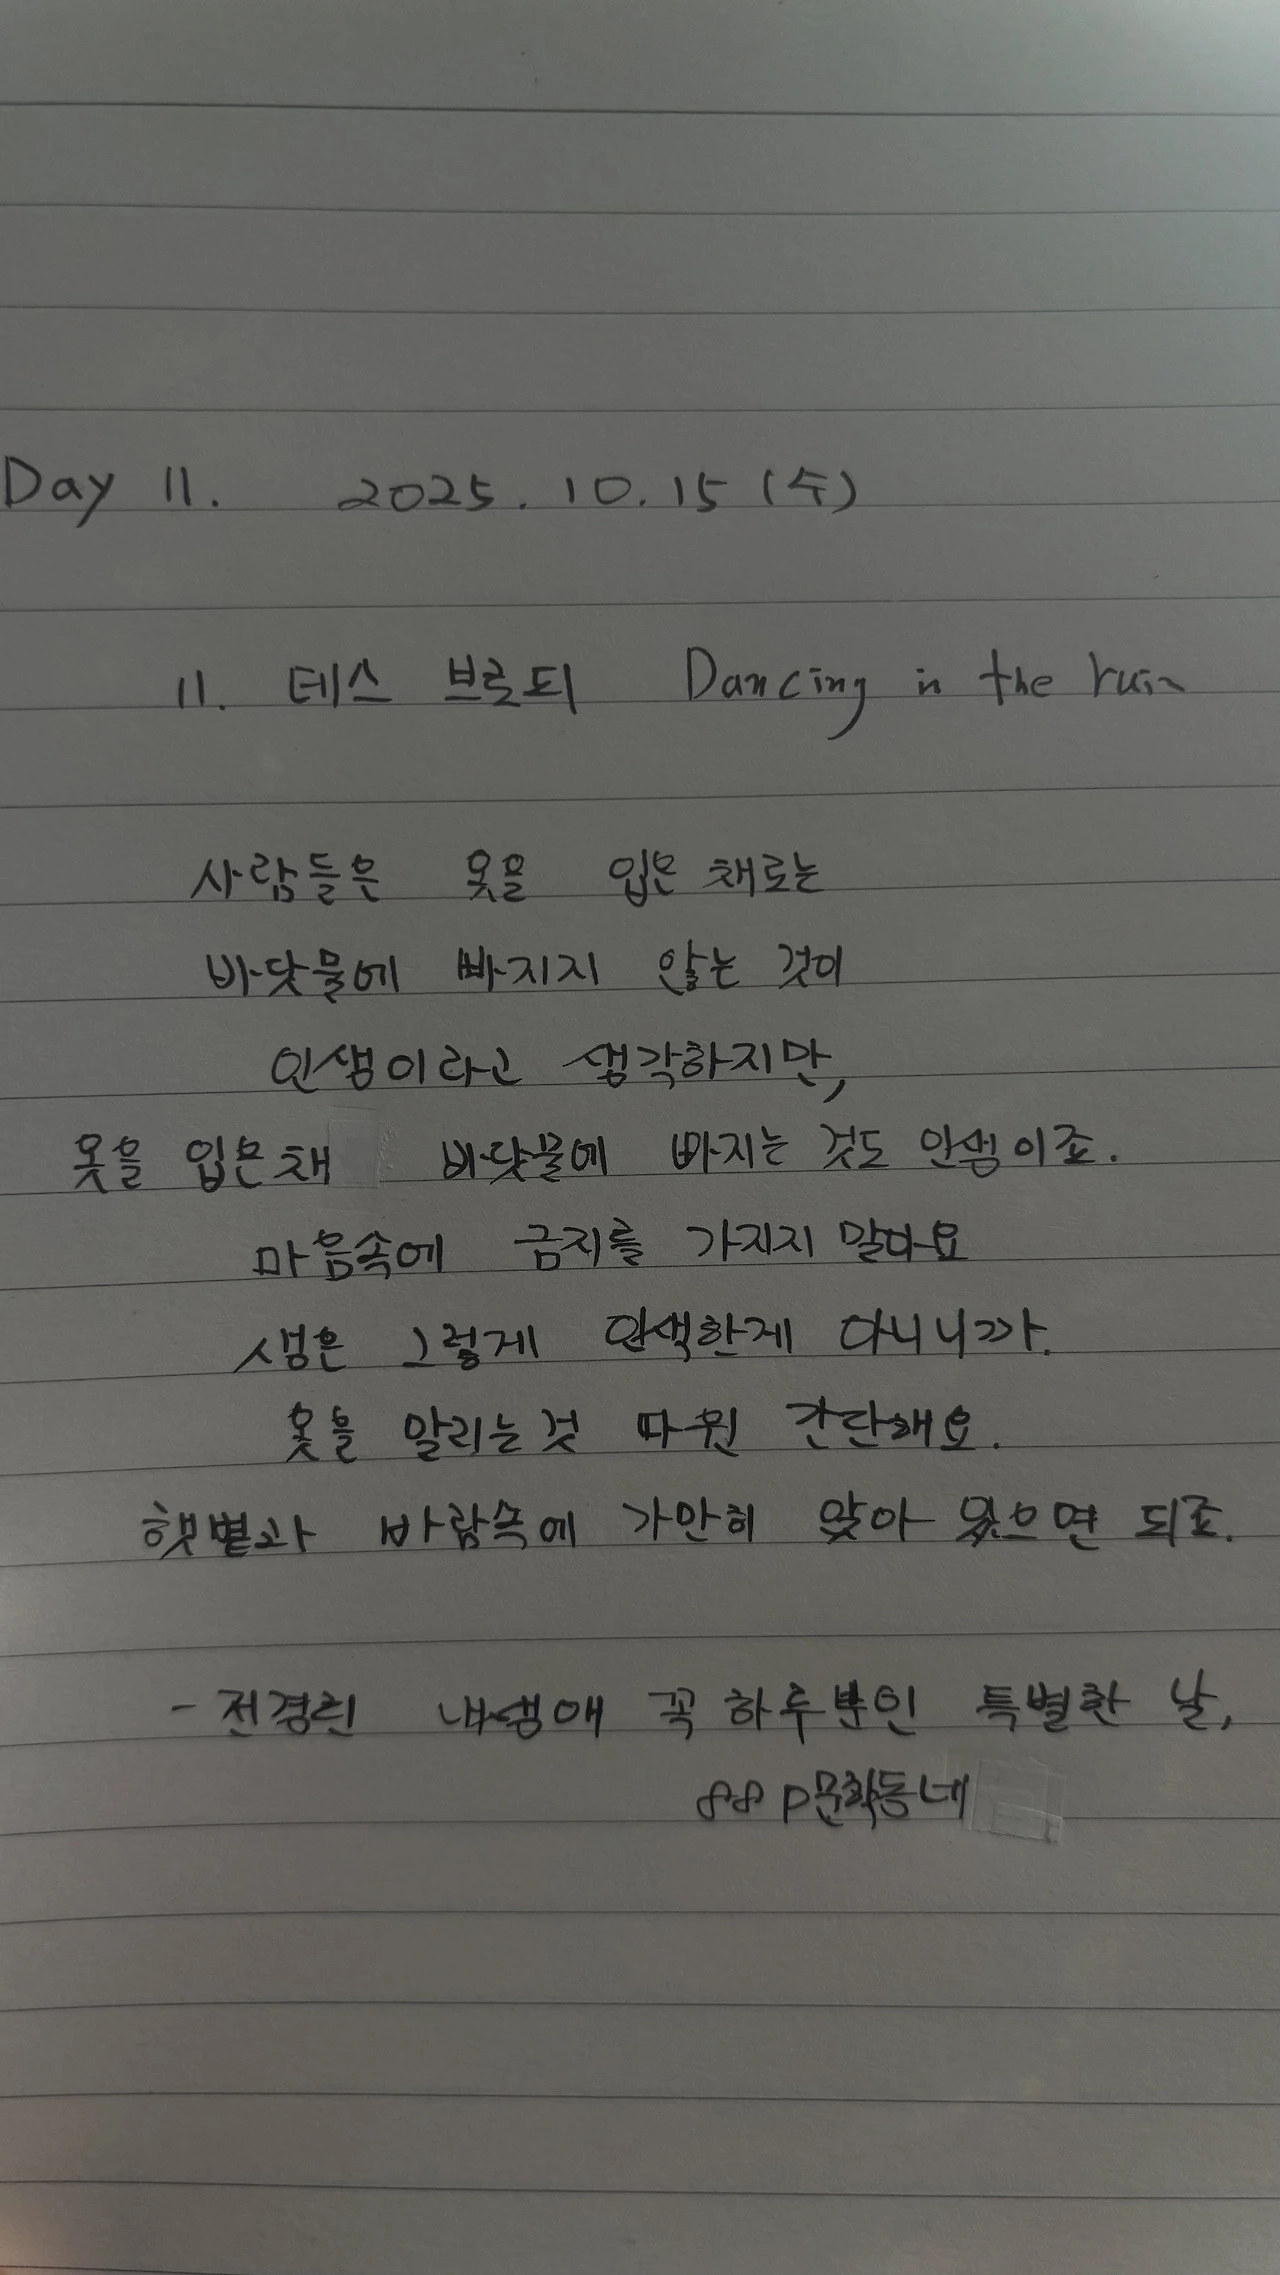 Day 11. 2025.10.15 (수)
11. 테스 브로퇴 Dancing in the ruin
사람들은 옷을 입은 채로는
바닷물에 빠지지 않는 것이
인생이라고 생각하지만,
옷을 입은채 바닷물에 빠지는 것도 인생이죠.
마음속에 금지를 가지지 말아요
생은 그렇게 인색한게 아니니까.
옷을 말리는것 따윈 간단해요.
햇볕과 바람속에 가만히 앉아 있으면 되죠.
- 전경린 내생애 꼭 하루뿐인 특별한 날,
88p문학동네